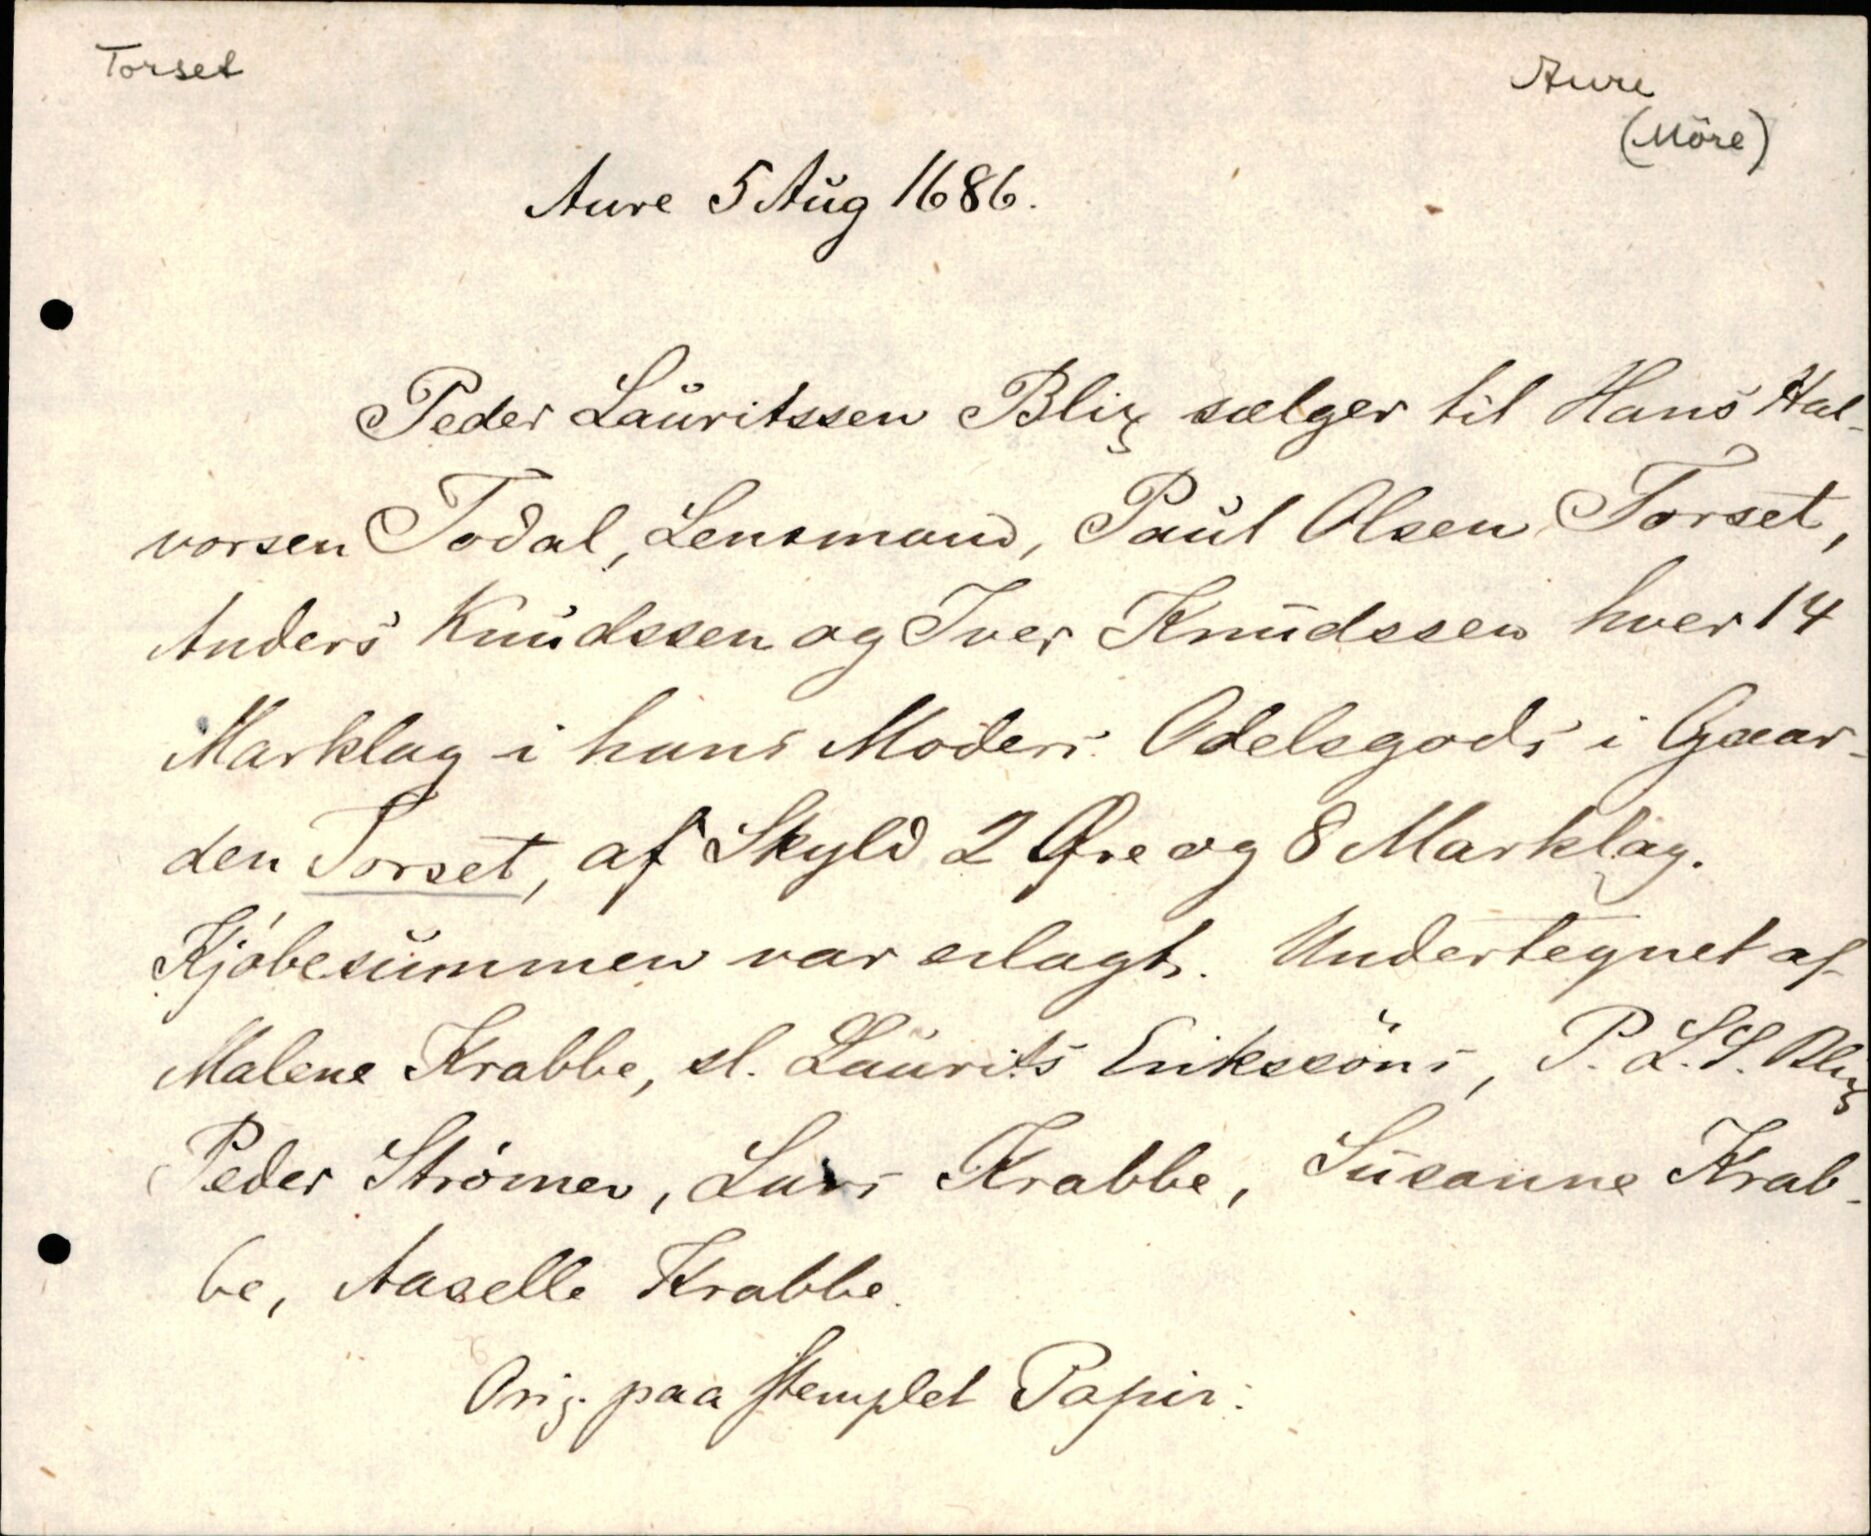 Torset
Aure
(Möre)
Aure 5 Aug 1686.
Peder Lauritssen Blix sælger til Hans Hal-
vorsen Todal, Lensmand, Paul Olsen Torset,
Anders Knudssen og Iver Knudssen hver 14
Marklag i hans Moders Odelsgods i Gaar-
den Torset, af Skyld 2 Øre og 8 Marklag.
Kjøbesummen var erlagt. Undertegnet af
Malene Krabbe, sl. Laurits Erikssöns, P. L. S. Blix
Peder Strømer, Lars Krabbe, Susanne Krab-
be, Aaselle Krabbe.
Orig. paa stemplet Papir.